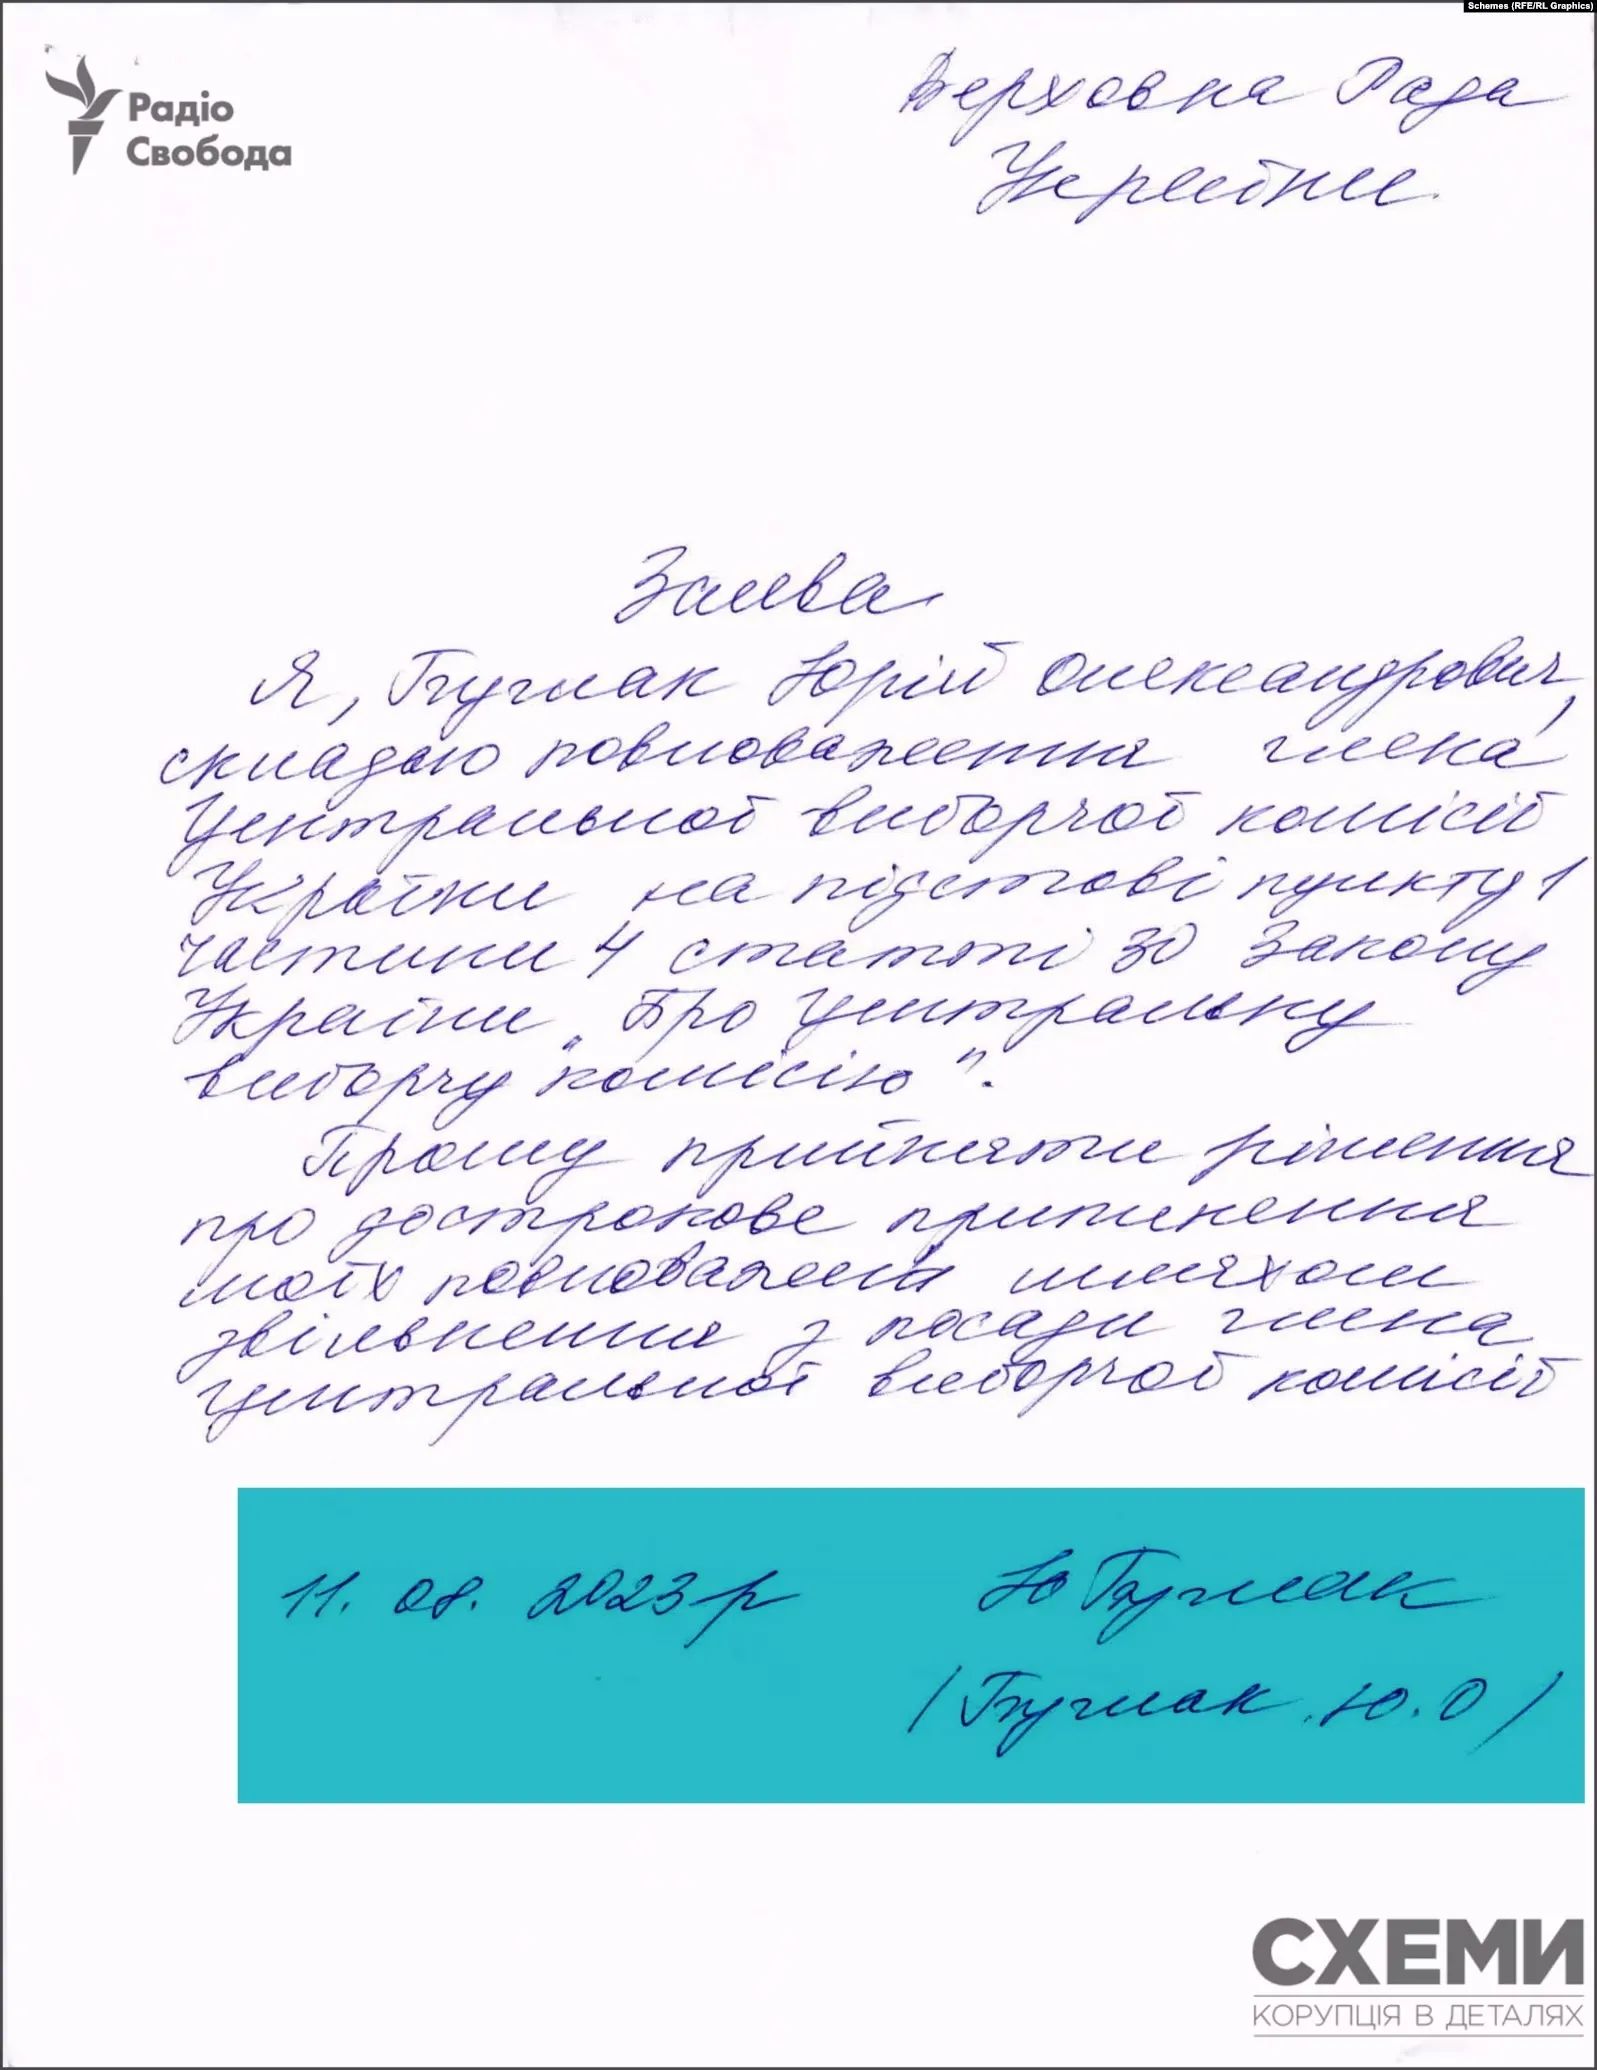 Schemes (RFE/RL Graphics)
Радіо
Свобода
Верховна Рада
України
Заява
Я, Буглак Юрій Олександрович,
складаю повноваження члена
Центральної виборчої комісії
України на підставі пункту 1
частини 4 статті 30 Закону
України „Про Центральну
виборчу комісію".
Прошу прийняти рішення
про дострокове припинення
моїх повноважень шляхом
звільнення з посади члена
Центральної виборчої комісії
11. 08. 2023 р Ю Буглак
/ Буглак Ю.О /
СХЕМИ
КОРУПЦІЯ В ДЕТАЛЯХ